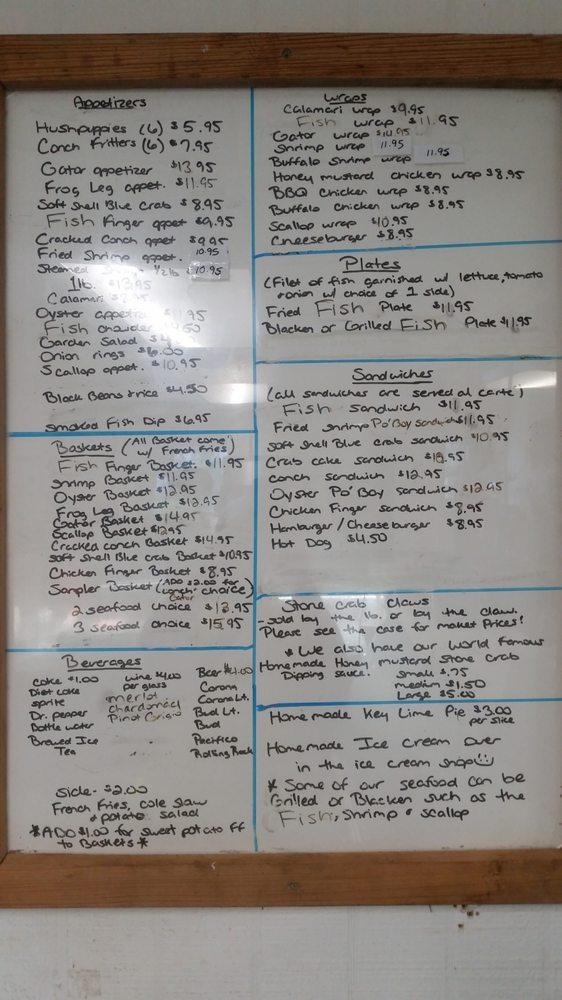 Appetizers
Hushpuppies (6) $5.95
Conch Fritters (6) $7.95
Gator appetizer $13.95
Frog Leg appet. $11.95
Soft Shell Blue Crab $8.95
Fish Finger appet $9.95
Cracked Conch appet $9.95
Fried Shrimp appet. 10.95
Steamed 1/2 lb $10.95
1 lb. $13.95
Calamari
Oyster
Fish chowder
Garden Salad
Onion rings $6.00
Scallop appet. $10.95
Black Beans & rice $4.50
Smoked Fish Dip $6.95
Baskets (All Basket come
w/ French Fries)
Fish Finger Basket. $11.95
Shrimp Basket $11.95
Oyster Basket $12.95
Frog Leg Basket $12.95
Gator Basket $14.95
Scallop Basket $12.95
Cracked Conch Basket $14.95
Soft Shell Blue Crab Basket $10.95
Chicken Finger Basket $8.95
Sampler Basket (ADD $2.00 for
Conch choice)
Gator
2 seafood choice $13.95
3 seafood choice $15.95
Beverages
Coke $1.00
Diet Coke
Sprite
Dr. pepper
Bottle water
Brewed Ice
Tea
wine $4.00
per glass
merlot
chardonnay
Pinot Grigio
Beer $4.00
Corona
Corona Lt.
Bud Lt.
Bud
Pacifico
Rolling Rock
Side - $2.00
French Fries, Cole Slaw
& potato salad
*ADD $1.00 for sweet potato FF
to Baskets*
Wraps
Calamari wrap $9.95
Fish wrap $11.95
Gator wrap
Shrimp wrap 11.95
Buffalo Shrimp wrap 11.95
Honey mustard chicken wrap $8.95
BBQ Chicken wrap $8.95
Buffalo Chicken wrap $8.95
Scallop wrap $10.95
Cheeseburger $8.95
Plates
(Filet of fish garnished w/ lettuce, tomato
& onion w/ choice of 1 side)
Fried Fish Plate $11.95
Blacken or Grilled Fish Plate $11.95
Sandwiches
(all sandwiches are served al carte')
Fish sandwich $11.95
Fried shrimp Po'Boy sandwich $11.95
soft shell Blue crab sandwich $10.95
Crab cake sandwich
conch sandwich $12.95
Oyster Po'Boy sandwich $12.95
Chicken Finger sandwich $8.95
Hamburger/Cheeseburger $8.95
Hot Dog $4.50
Stone crab claws
- sold by the lb. or by the claw.
Please see the case for market Prices!
* We also have our world famous
Homemade Honey mustard stone crab
Dipping sauce. small $.75
medium $1.50
Large $5.00
Homemade Key Lime Pie $3.00
per slice
Homemade Ice cream over
in the ice cream shop
* Some of our seafood can be
Grilled or Blacken such as the
Fish, Shrimp & scallop